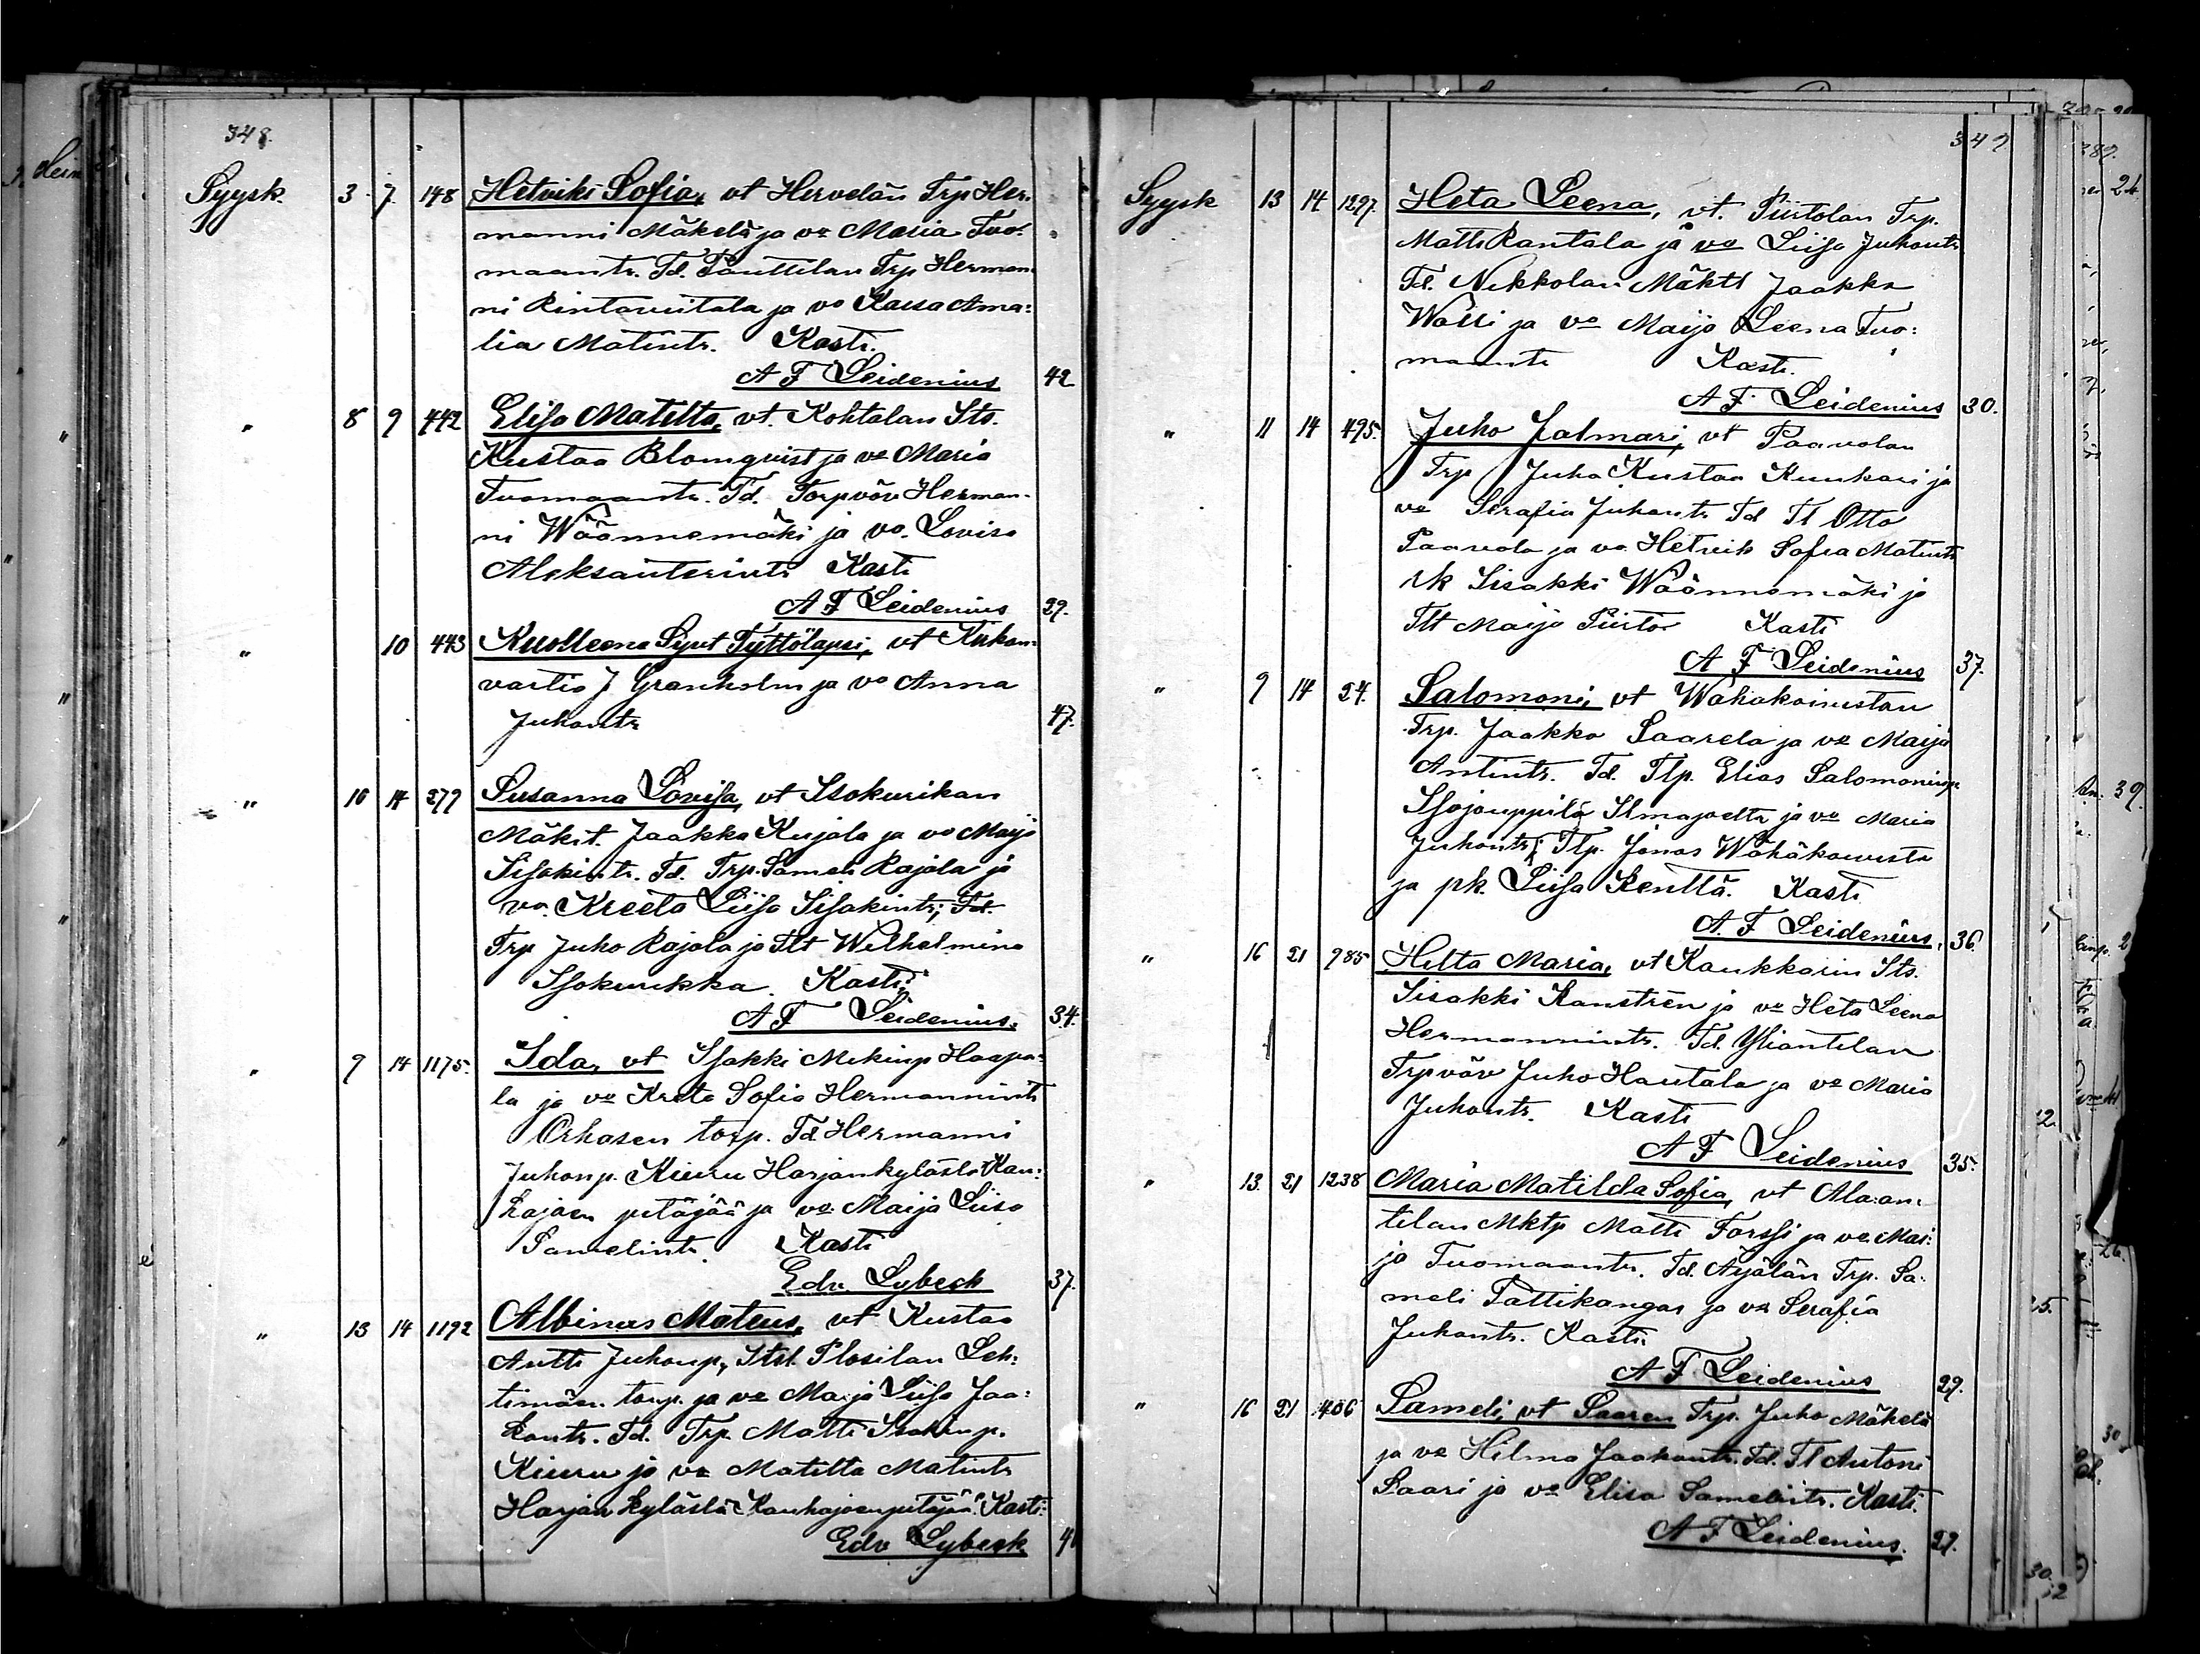 348.
Syysk. 3 7. 148 Hetviki Sofia, vt Hervelän Trp Her-
manni Mäkelä ja vo Maria Tuo-
maantr. Td. Panttilan Trp Herman-
ni Rintaviitala ja vo Kaisa Ama:
lia Matintr. Kasti.
A F Leidenius 42
" 8 9 442 Elisa Matilta, vt. Kohtalan Its.
Kustaa Blomqvist ja vo Maria
Tuomaantr. Td. Torpväv Herman-
ni Wäännemäki ja vo. Lovisa
Aleksanterintr Kasti
A F Leidenius 29.
" 10 443 Kuolleena Synt Tyttölapsi, vt Kukon-
vartio J Granholm ja vo Anna
Juhontr 47.
" 10 14 279 Susanna Lovisa, vt Isokurikan
Mäkit. Jaakko Kujala ja vo Maija
Iisakintr. Td. Trp. Sameli Rajala ja
vo. Kreeta Liisa Iisakintr; Td.
Trp Juho Rajala ja Tlt Wilhelmina
Isokurikka. Kasti:
A F Leidenius. 34.
" 9 14 1175. Ida, vt Isakki Mikinp Haapa-
la ja vo Kreta Sofia Hermannintr
Orhasen torp. Td Hermanni
Juhonp. Kiuru Harjankylästä Kau:
hajoen pitäjää ja vo Maija Liisa
Samelintr. Kasti
Edv. Lybeck 37.
" 13 14 1192 Albinus Mateus, vt Kustaa
Antti Juhonp, Itsl. Plosilan Leh:
timäen torp. ja vo Maija Liisa Jaa:
kontr. Td. Trp. Matti Isakinp.
Kiuru ja vo Matilta Matintr
Harjankylästä Kauhajoen pitäjää. Kasti.
Edv Lybeck
349
Syysk 13 14 1297. Heta Leena, vt. Piirtolan Trp.
Matti Rantala ja vo Liisa Juhontr
Td. Nikkolan Mäktl Jaakko
Walli ja vo Maija Leena Tuo:
maantr Kasti.
A F Leidenius 30.
" 11 14 495. Juho Jalmari, vt Paavolan
Trp Juha Kustaa Kuukari ja
vo Serafia Juhontr Td Tl Otto
Paavola ja vo. Hetvik Sofia Matintr
rk Iisakki Wäännemäki ja
Tlt Maija Piirto Kasti
A F Leidenius 37.
" 9 14 24. Salomoni, vt Wähäkoiviston
Trp. Jaakko Saarela ja vo Maija
Antintr. Td. Tlp. Elias Salomoninp.
Isojouppila Ilmajoelta ja vo Maria
Juhontr; Tlp. Jonas Wähäkoivisto
ja pk. Liisa Kenttä. Kasti
A. F Leidenius, 36.
" 16 21 985 Hilta Maria, vt Kaukkarin Its.
Iisakki Kanstrén ja vo Heta Leena
Hermannintr. Td. Yliantilan
Trpväv Juho Hautala ja vo Maria
Juhontr. Kasti
A F Leidenius 35.
" 13. 21 1238 Maria Matilda Sofia, vt Ala:an:
tilan Mktp Matti Forssi ja vo. Mai:
ja Tuomaantr. Td. Äijälän Trp. Sa-
meli Pattikangas ja vo Serafia
Juhontr. Kasti.
A F Leidenius 29.
" 16 21 1406 Sameli, vt Saaren Trp. Juho Mäkelä
ja vo Hilma Jaakontr. Td. Tl Antoni
Saari ja vo Elisa Samelintr. Kasti.
A F Leidenius. 29.